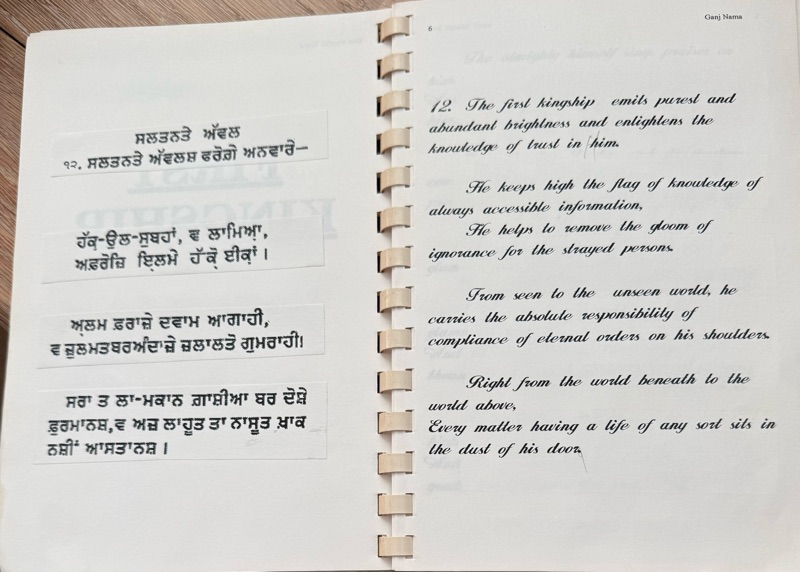 ਸਲਤਨਤੇ ਅੱਵਲ
੧੨. ਸਲਤਨਤੇ ਅੱਵਲਸ਼ ਫਰੋਗ਼ੇ ਅਨਵਾਰੇ—
ਹੱਕ਼-ਉਲ-ਸੁਬਹਾਂ, ਵ ਲਾਮਿਆ਼,
ਅਫ਼ਰੋਜ਼ਿ ਇ਼ਲਮੇ ਹੱਕੋ਼ ਈਕਾਂ਼ ।
ਅ਼ਲਮ ਫ਼ਰਾਜ਼ੇ ਦਵਾਮ ਆਗਾਹੀ,
ਵ ਜ਼ੁਲਮਤਬਰਅੰਦਾਜ਼ੇ ਜ਼ਲਾਲਤੋ ਗੁਮਰਾਹੀ।
ਸਰਾ ਤ ਲਾ-ਮਕਾਨ ਗ਼ਾਸ਼ੀਆ ਬਰ ਦੋਸ਼ੇ
ਫ਼ੁਰਮਾਨਸ਼,ਵ ਅਜ਼ ਲਾਹੂਤ ਤਾ ਨਾਸੂਤ ਖ਼ਾਕ
ਨਸ਼ੀਂ ਆਸਤਾਨਸ਼ ।
Ganj Nama
6
12. The first kingship emits purest and
abundant brightness and enlightens the
knowledge of trust in him.
He keeps high the flag of knowledge of
always accessible information,
He helps to remove the gloom of
ignorance for the strayed persons.
From seen to the unseen world, he
carries the absolute responsibility of
compliance of eternal orders on his shoulders.
Right from the world beneath to the
world above,
Every matter having a life of any sort sits in
the dust of his door.